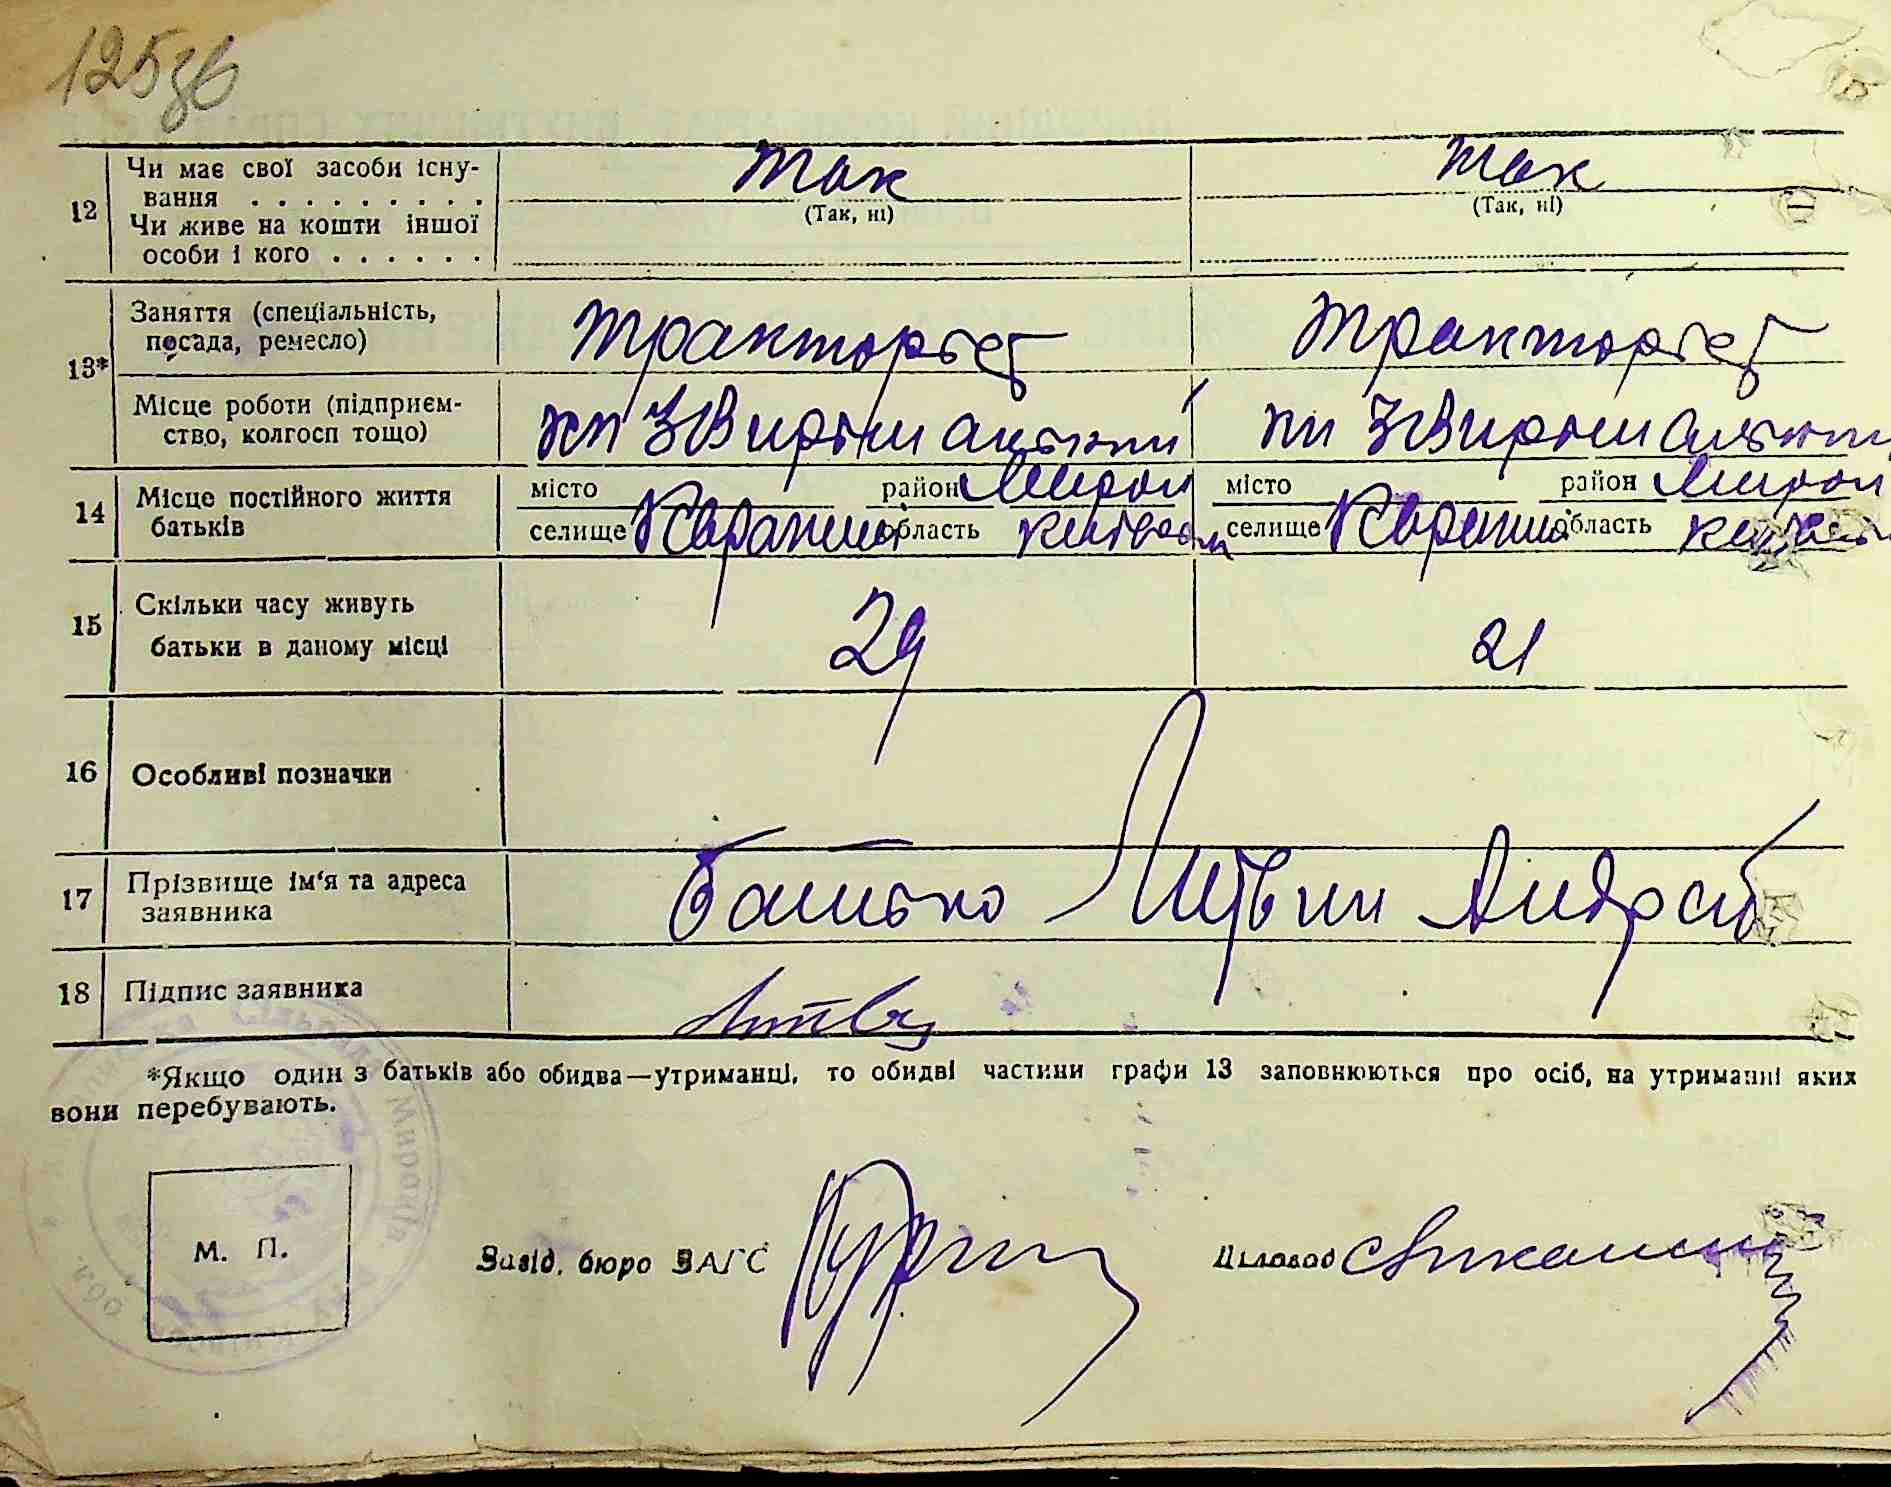 125зв
12 Чи має свої засоби існу-
вання . . . . . . . . . Так Так
(Так, ні) (Так, ні)
Чи живе на кошти іншої
особи і кого . . . . . .
13* Заняття (спеціальність,
посада, ремесло) тракторіст тракторіст
Місце роботи (підприєм-
ство, колгосп тощо)
14 Місце постійного життя
батьків
місто район Мирон місто район Мирон
селище Карапиші область селище Карапиші область
15 Скільки часу живуть
батьки в даному місці 29 21
16 Особливі позначки
17 Прізвище ім'я та адреса
заявника батько Литвин Андрей
18 Підпис заявника
*Якщо один з батьків або обидва—утриманці, то обидві частини графи 13 заповнюються про осіб, на утриманні яких
вони перебувають.
М. П. Завід. бюро ЗАГС Діловод